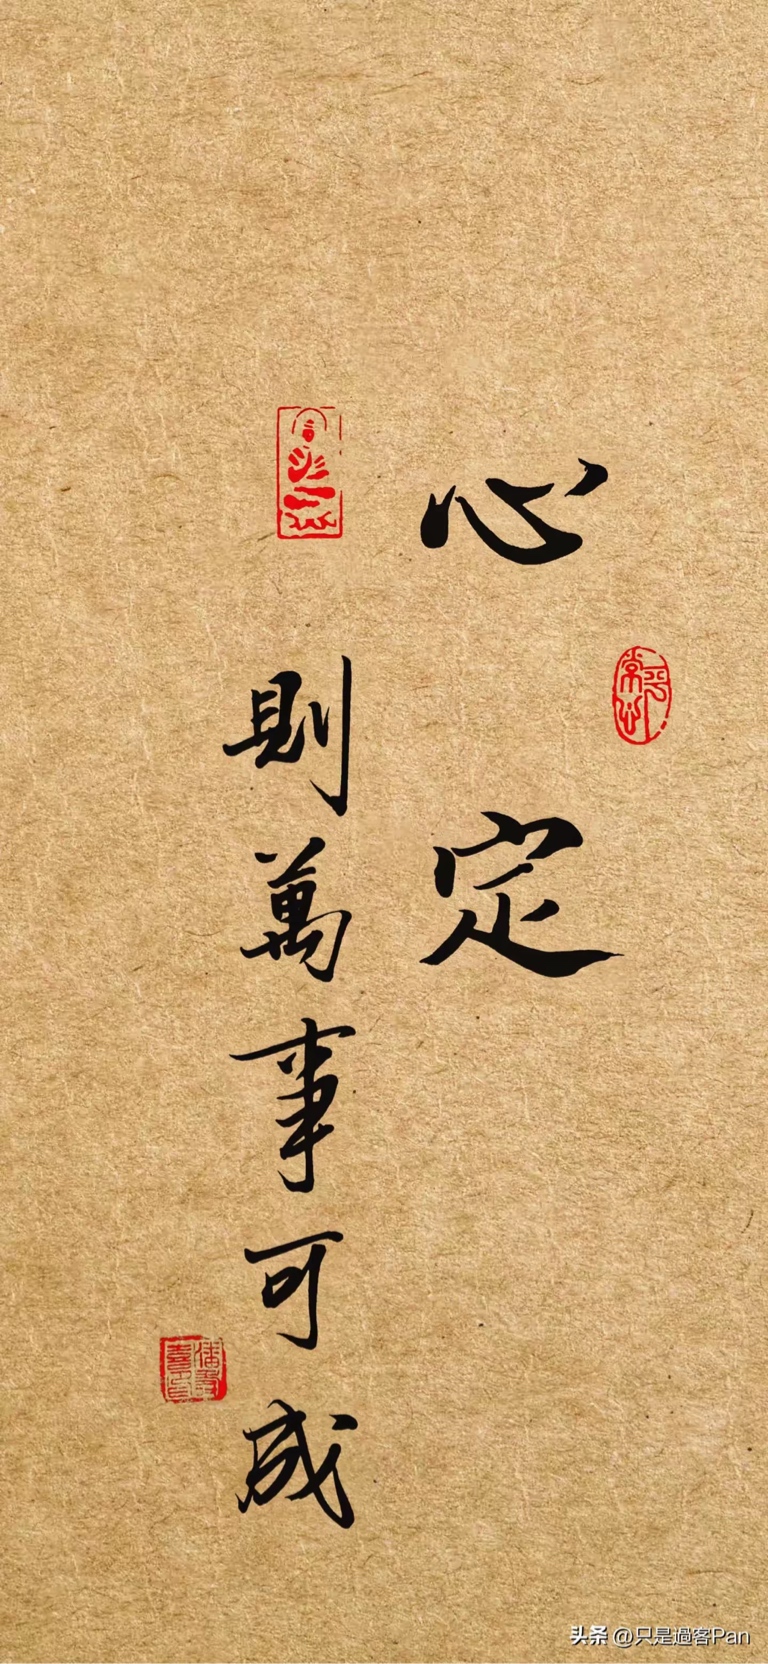 心定
則萬事可成
头条 @只是過客Pan